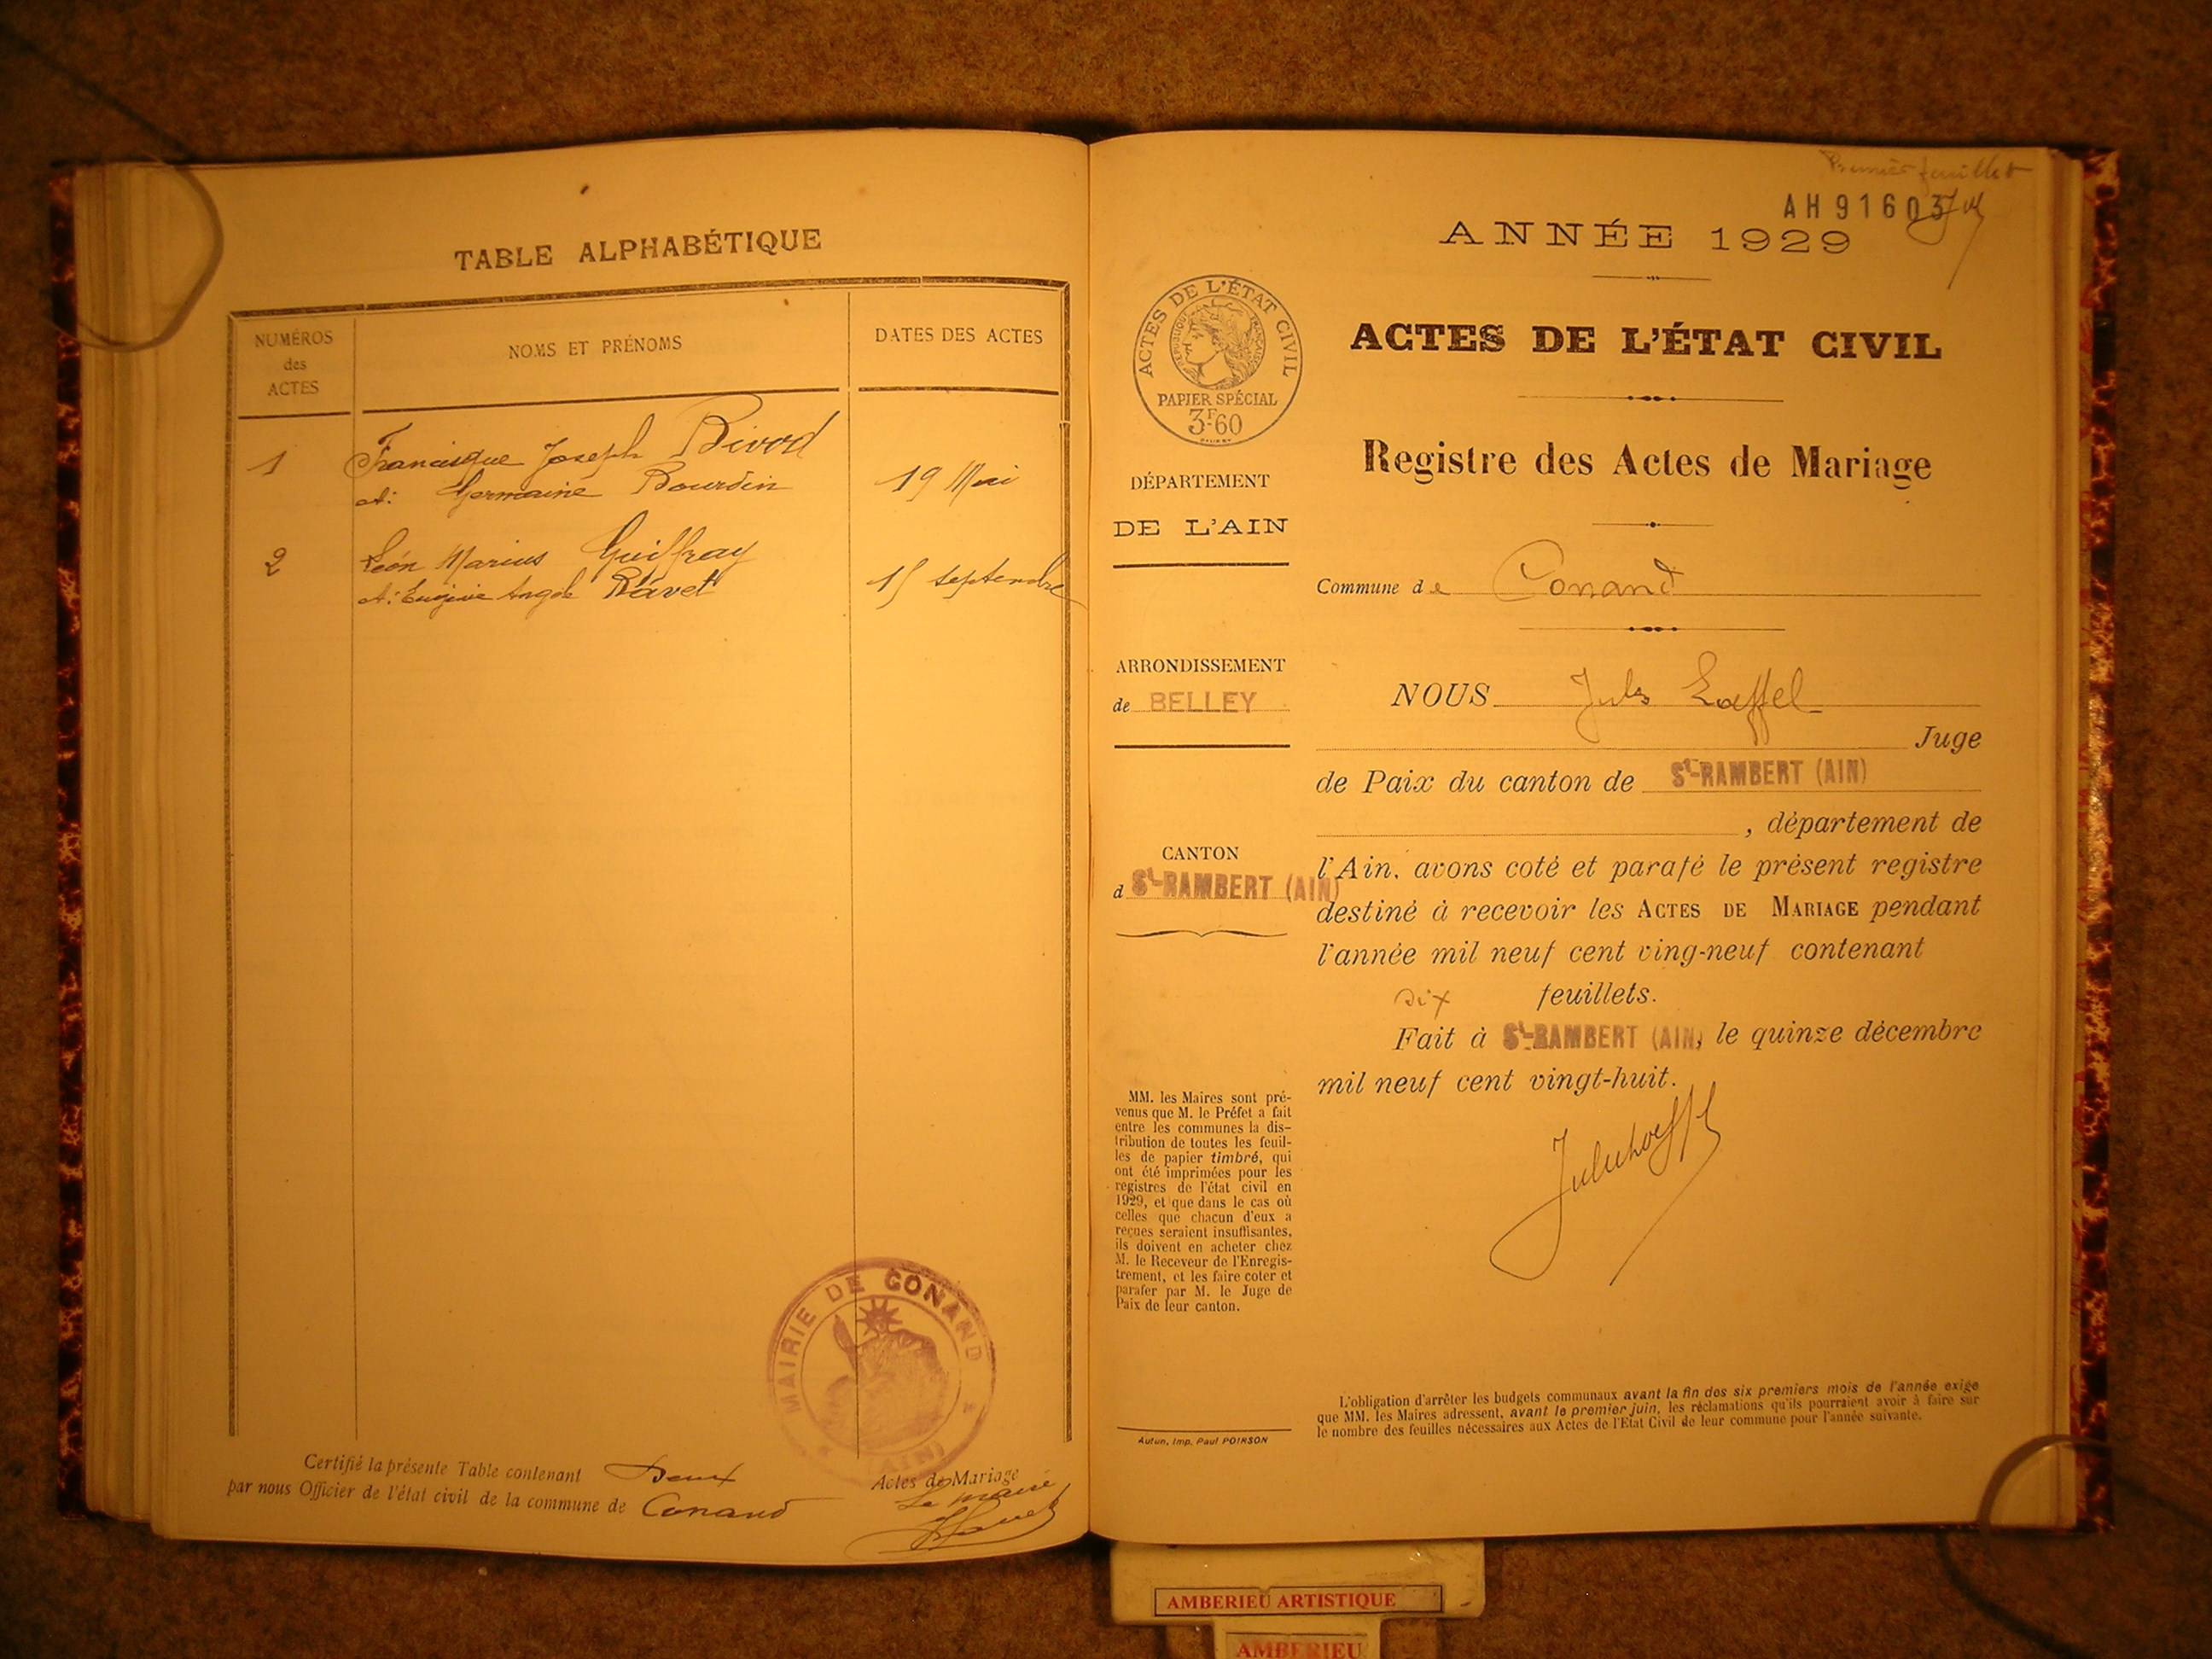 TABLE ALPHABÉTIQUE
NUMÉROS
des
ACTES
NOMS ET PRÉNOMS
DATES DES ACTES
1
Francisque Joseph
et: Germaine Bourdin
19 Mai
2
Léon Marius Guiffray
et: Eugénie Angèle Ravet
15 septembre
MAIRIE DE CONAND
(AIN)
Certifié la présente Table contenant Deux Actes de Mariage
par nous Officier de l'état civil de la commune de Conand
Le maire
Premier feuillet
AH 91603
ANNÉE 1929
ACTES DE L'ÉTAT CIVIL
RÉPUBLIQUE FRANÇAISE
PAPIER SPÉCIAL
3F60
ACTES DE L'ÉTAT CIVIL
Registre des Actes de Mariage
DÉPARTEMENT
DE L'AIN
Commune de Conand
ARRONDISSEMENT
de BELLEY
CANTON
d St-RAMBERT (AIN)
NOUS Jules
Juge
de Paix du canton de St-RAMBERT (AIN)
, département de
l'Ain, avons coté et parafé le présent registre
destiné à recevoir les ACTES DE MARIAGE pendant
l'année mil neuf cent ving-neuf contenant
dix feuillets.
Fait à St-RAMBERT (AIN) le quinze décembre
mil neuf cent vingt-huit.
MM. les Maires sont pré-
venus que M. le Préfet a fait
entre les communes la dis-
tribution de toutes les feuil-
les de papier timbré, qui
ont été imprimées pour les
registres de l'état civil en
1929, et que dans le cas où
celles que chacun d'eux a
reçues seraient insuffisantes,
ils doivent en acheter chez
M. le Receveur de l'Enregis-
trement, et les faire coter et
parafer par M. le Juge de
Paix de leur canton.
Autun, Imp. Paul POIRSON
L'obligation d'arrêter les budgets communaux avant la fin des six premiers mois de l'année exige
que MM. les Maires adressent, avant le premier juin, les réclamations qu'ils pourraient avoir à faire sur
le nombre des feuilles nécessaires aux Actes de l'Etat Civil de leur commune pour l'année suivante.
AMBERIEU ARTISTIQUE
AMBERIEU